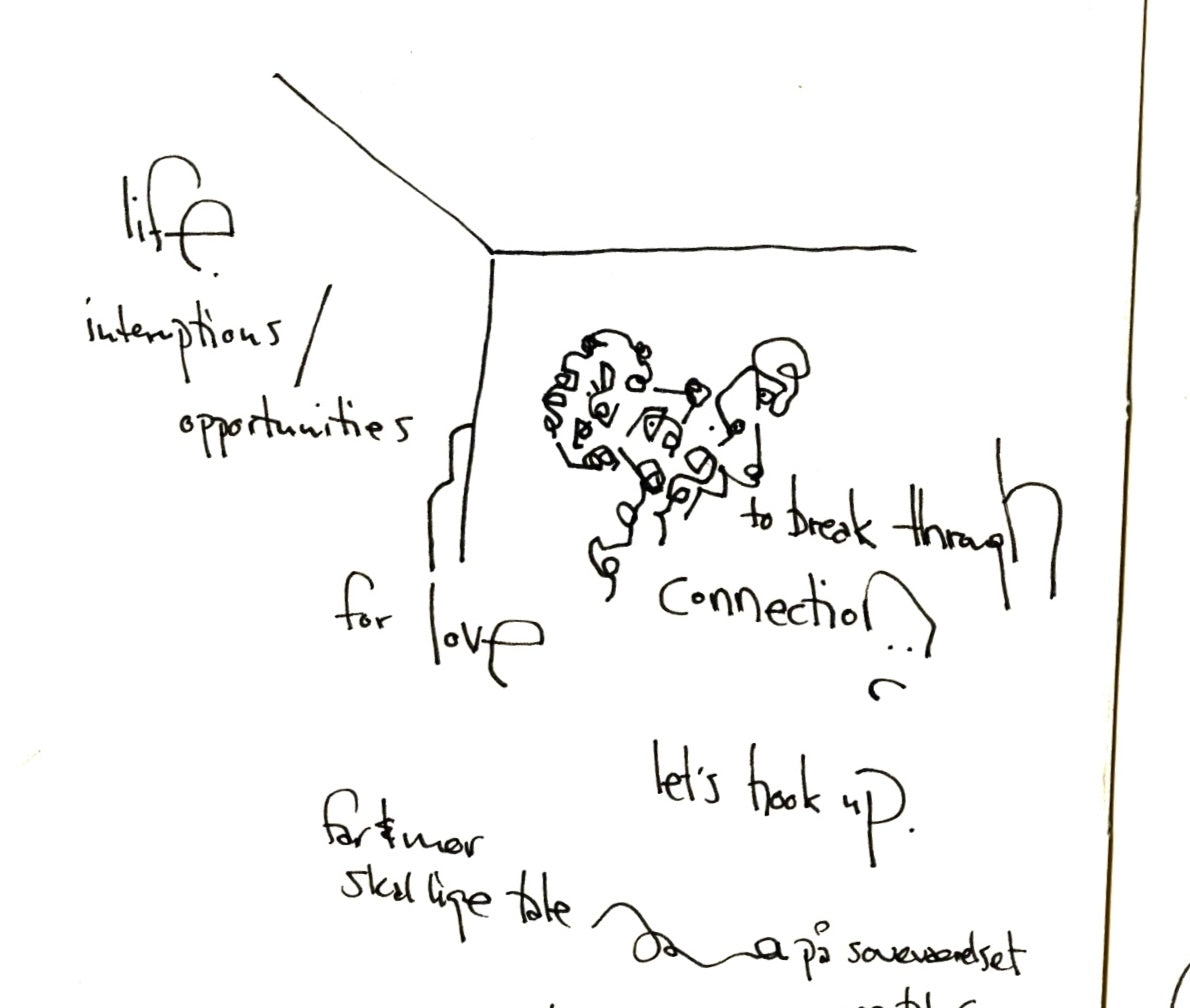 life.
interuptions /
opportunities
for love
to break through
connection
let's hook up.
far & mor
skal lige tale
på soveværelset